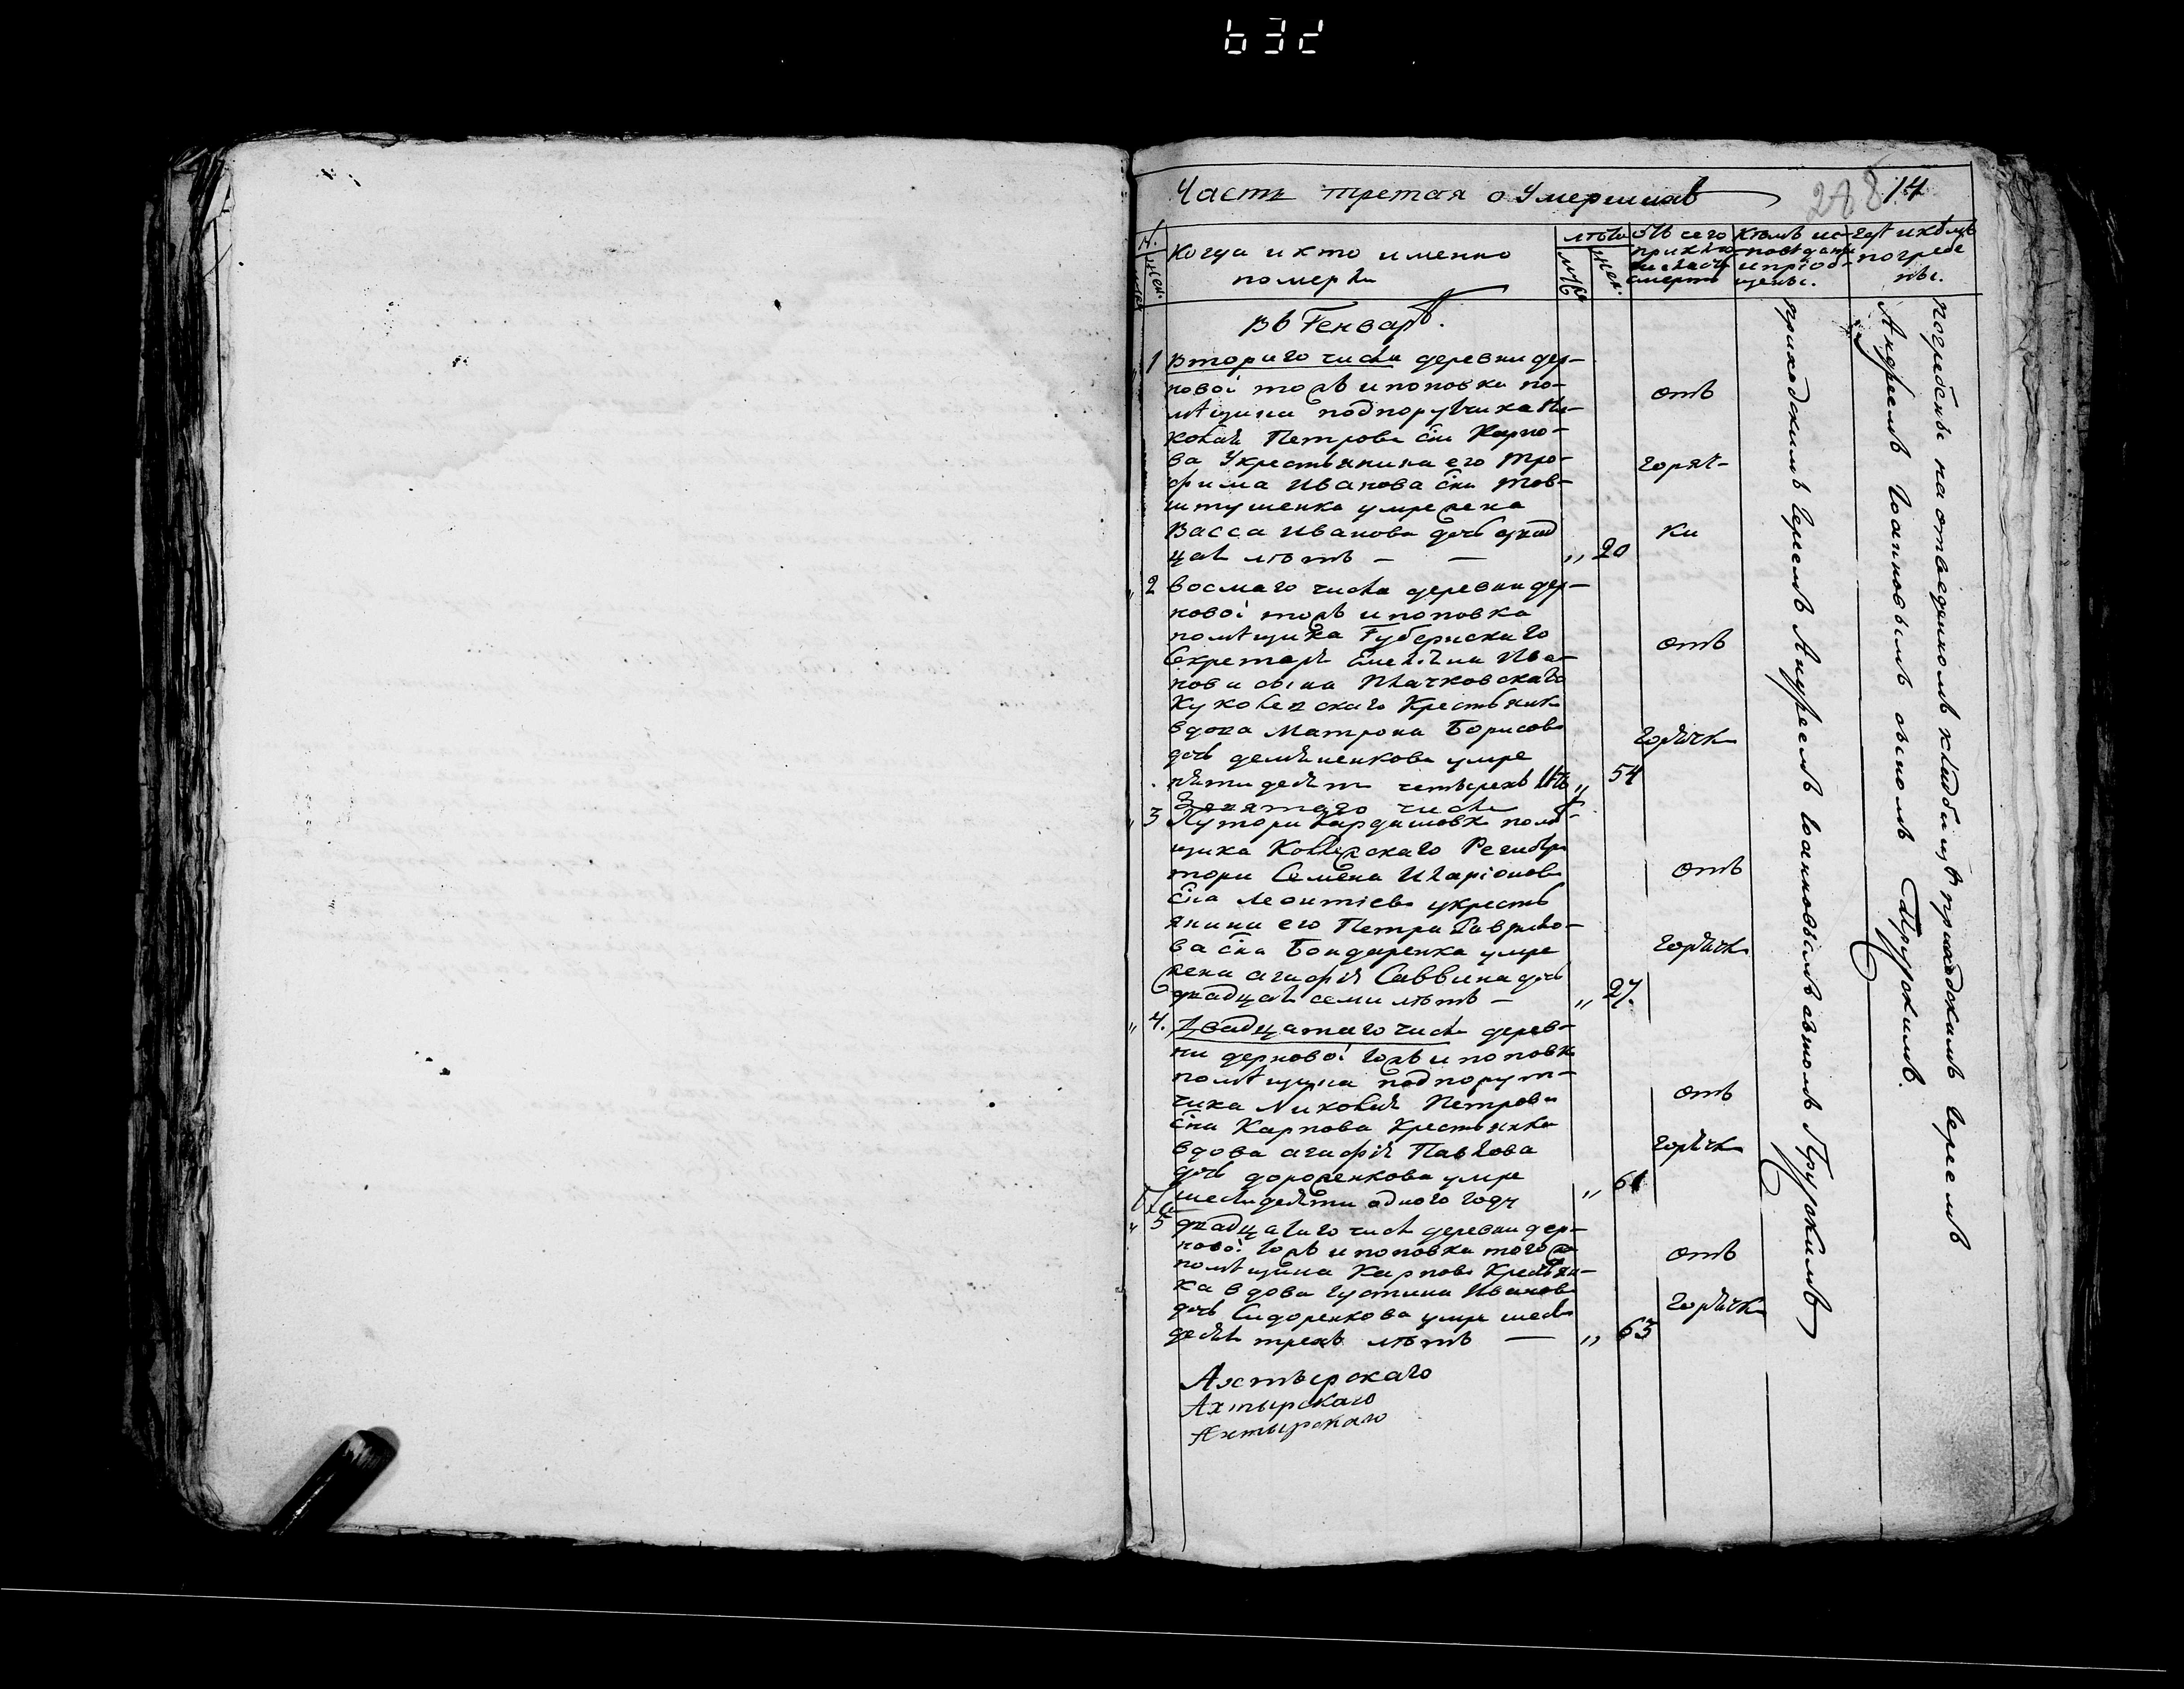 632
Часть третая о Умершихъ
288 14
N.
муж. жен.
Когда и кто именно
померли
лѣта
муж. жен.
отъ чего
приклю
чилась
смерть
Кѣмъ ис
повѣданы
и пріоб
щены.
Гдѣ и кѣмъ
погребе
ны.
Въ Генварѣ.
1 Втораго числа деревни дер-
новой тожъ и поповка по-
мѣщика подпорутчика Ни-
колая Петрова сна Карпо-
ва Украстьянина его Тро-
фима Иванова сна Тов-
штушенка умре жена
Васса Иванова дочь двад
цати лѣтъ — — „ 20
отъ
горяч-
ки
„ 2 восмаго числа деревни дер-
новой тожъ и поповка
помѣщика Губернскаго
Секретаря Емеляна Ива-
нова сына Плачковскаго
Крестьянк
вдова Матрона Борисова
дочь демяненкова умре
пятидесяти четырехъ лѣтъ „ 54
отъ
горячк
девятаго числа
„ 3 Хутора Кардашовк помѣ-
щика Колежскаго Регистра
тора Семена Иларіонова
сна Леонтіева укресть
янина его Петра Гаврило-
ва сна Бондаренка умре
жена агафія Саввина дочь
двадцати семи лѣтъ — „ 27.
отъ
горячк
„ 4. Двадцатаго числа дерев-
ни дерновой тожъ и поповк
помѣщика подпорут-
чика Николая Петрова
сна Карпова Крестьянка
вдова агафія Павлова
дочь дороженкова умре
шестидесяти одного году „ 61
отъ
горячк
„ 5 двадцатаго числа деревни дер-
новой тожъ и поповка того же
помѣщика Карпова Крестьян-
ка вдова Иустина Иванова
дочь Сидоренкова умре шести
десяти трехъ лѣтъ — „ 63
отъ
горячк
приходскимъ Іереемъ Андреемъ Іоанновымъ сыномъ Прускимъ
погребены на отведенномъ кладбищѣ приходскимъ Іереемъ
Андреемъ Іоанновымъ сыномъ Прускимъ.
Ахтырскаго
Ахтырскаго
Ахтырскаго